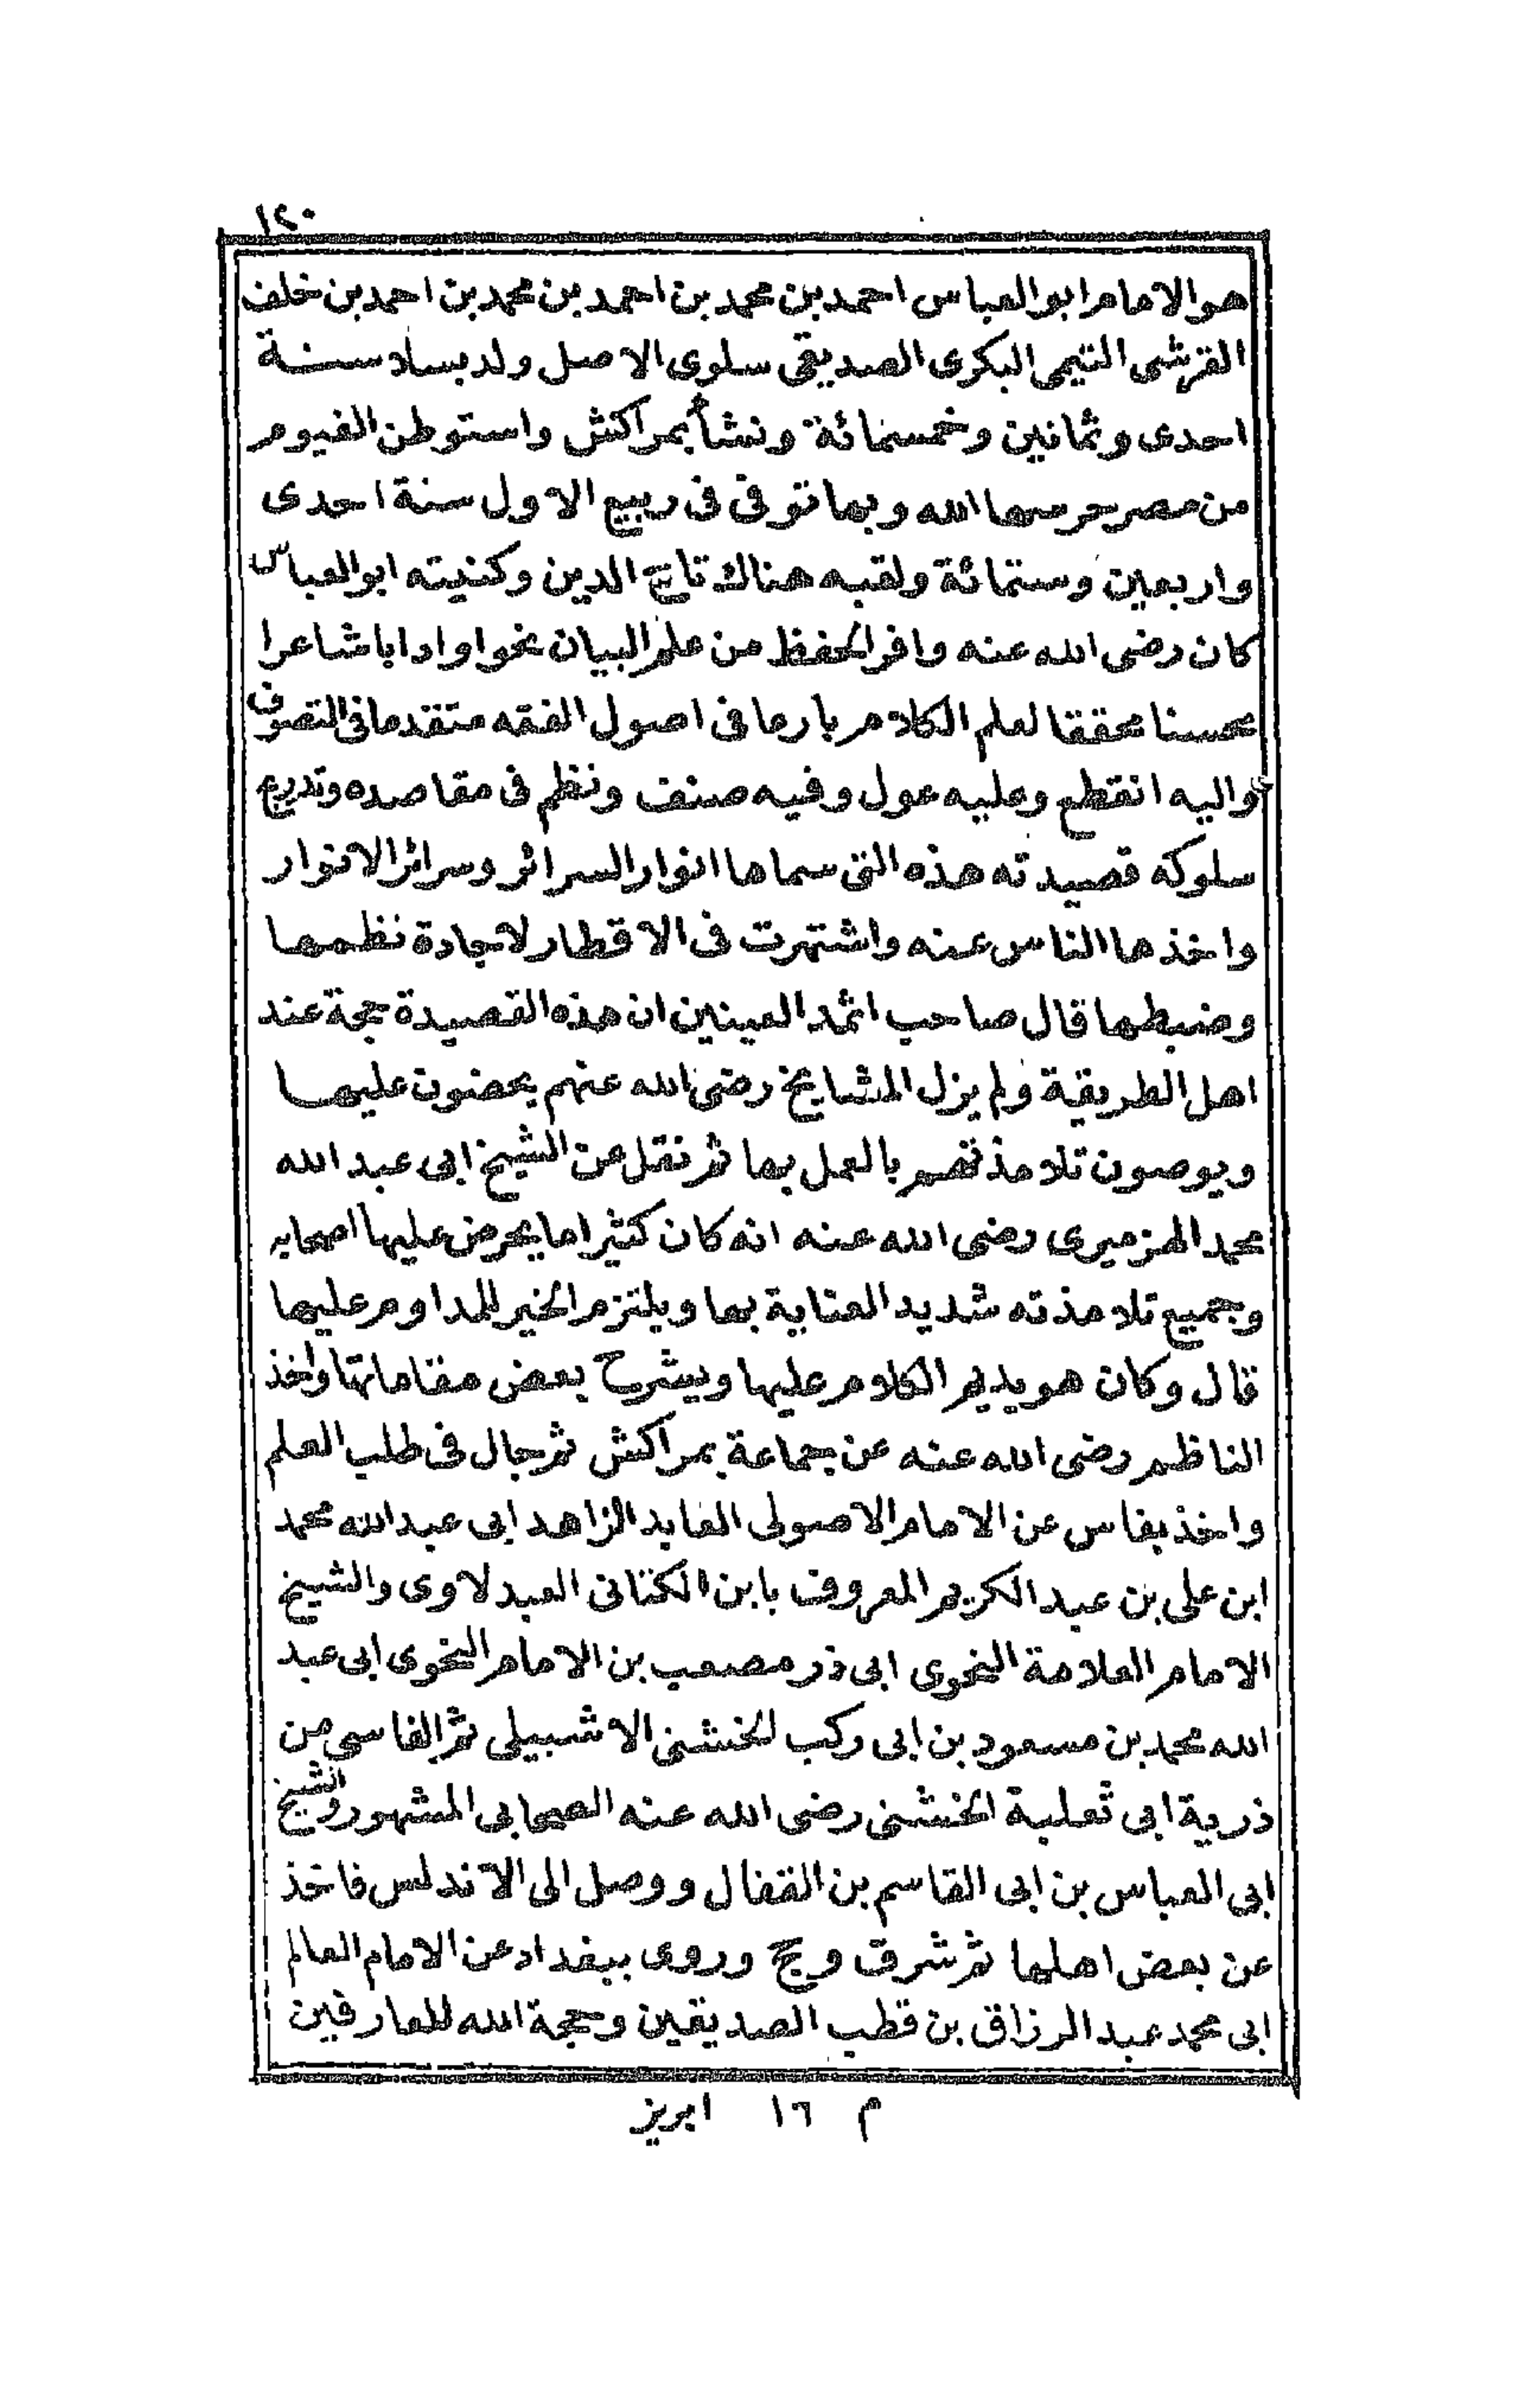 ١٢٠
هو الامام ابو العباس احمد بن محمد بن احمد بن محمد بن احمد بن خلف
القرشى التيمى البكرى الصديقى سلوى الاصل ولد بسلا سنة
احدى وثمانين وخمسمائة ونشأ بمراكش واستوطن الفيوم
من مصر حرسها الله وبها توفى فى ربيع الاول سنة احدى
واربعين وستمائة ولقبه هناك تاج الدين وكنيته ابو العباس
كان رضى الله عنه وافر الحفظ من علم البيان نحوا وادابا شاعرا
محسنا محققا لعلم الكلام بارعا فى اصول الفقه متقدما فى التصوف
واليه انقطع وعليه عول وفيه صنف ونظم فى مقاصده وتدريج
سلوكه قصيدته هذه التى سماها انوار السرائر وسرائر الانوار
واخذها الناس عنه واشتهرت فى الاقطار لاجادة نظمها
وضبطها قال صاحب اثمد العينين ان هذه القصيدة حجة عند
اهل الطريقة ولم يزل المشايخ رضى الله عنهم يحضون عليها
ويوصون تلامذتهم بالعمل بها ثم نقل عن الشيخ ابى عبد الله
محمد الهزميرى رضى الله عنه انه كان كثيرا ما يحرض عليها اصحابه
وجميع تلامذته شديد العناية بها ويلتزم الخير للمداوم عليها
قال وكان هو يديم الكلام عليها ويشرح بعض مقاماتها واخذ
الناظم رضى الله عنه عن جماعة بمراكش ثم جال فى طلب العلم
واخذ بفاس عن الامام الاصولى العابد الزاهد ابى عبد الله محمد
ابن على بن عبد الكريم المعروف بابن الكتانى العبدلاوى والشيخ
الامام العلامة النحوى ابى ذر مصعب بن الامام النحوى ابى عبد
الله محمد بن مسعود بن ابى ركب الخشنى الاشبيلى ثم الفاسى من
ذرية ابى ثعلبة الخشنى رضى الله عنه الصحابى المشهور والشيخ
ابى العباس بن ابى القاسم بن القفال ووصل الى الاندلس فاخذ
عن بعض اهلها ثم شرق وحج وروى ببغداد عن الامام العالم
ابى محمد عبد الرزاق بن قطب الصديقين وحجة الله للعارفين
م ١٦ ابريز